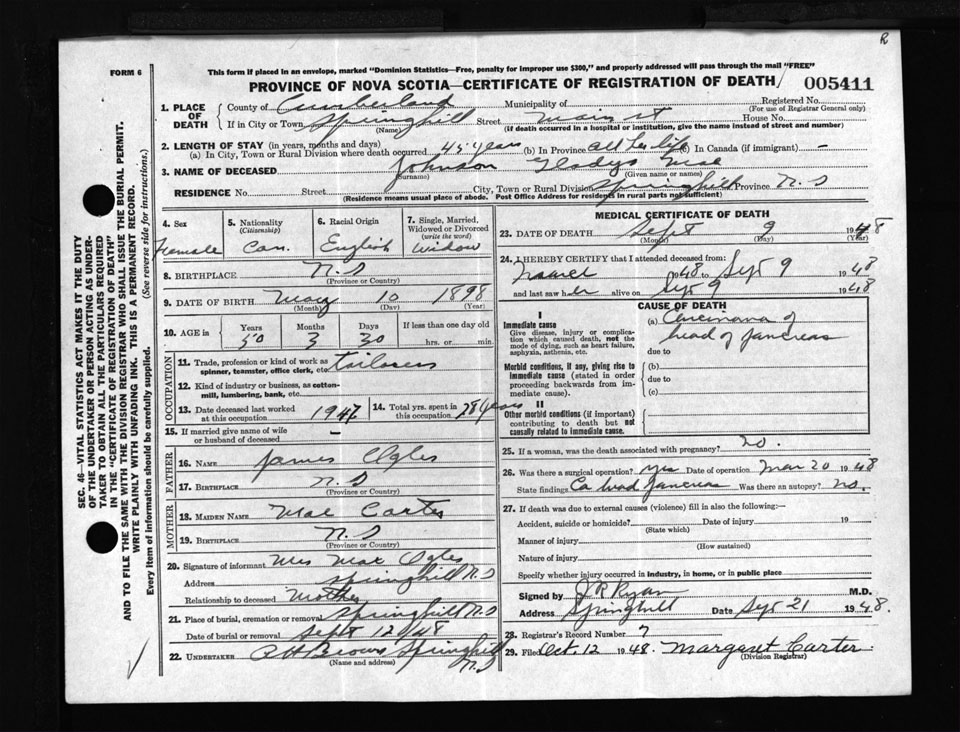 R
FORM 6
This form if placed in an envelope, marked "Dominion Statistics—Free, penalty for improper use $300," and properly addressed will pass through the mail "FREE"
PROVINCE OF NOVA SCOTIA—CERTIFICATE OF REGISTRATION OF DEATH / 005411
1. PLACE OF DEATH
County of Cumberland Municipality of Registered No.
(For use of Registrar General only)
If in City or Town Springhill Street Main St House No.
(Name) (If death occurred in a hospital or institution, give the name instead of street and number)
2. LENGTH OF STAY (in years, months and days)
(a) In City, Town or Rural Division where death occurred 45 years (b) In Province all her life (c) In Canada (if immigrant) —
3. NAME OF DECEASED Johnson Gladys Mae
Surname (Given name or names)
RESIDENCE No. Street City, Town or Rural Division Springhill Province N.S
(Residence means usual place of abode. Post Office Address for residents in rural parts not sufficient)
4. Sex Female
5. Nationality (Citizenship) Can.
6. Racial Origin English
7. Single, Married, Widowed or Divorced (write the word) Widow
8. BIRTHPLACE N.S
(Province or Country)
9. DATE OF BIRTH May 10 1898
(Month) (Day) (Year)
10. AGE in Years 50 Months 3 Days 30 If less than one day old hrs. or min.
OCCUPATION
11. Trade, profession or kind of work as spinner, teamster, office clerk, etc. tailoress
12. Kind of industry or business, as cotton-mill, lumbering, bank, etc.
13. Date deceased last worked at this occupation 1947
14. Total yrs. spent in this occupation 28 years
15. If married give name of wife or husband of deceased —
FATHER
16. NAME James Ogles
17. BIRTHPLACE N.S
(Province or Country)
MOTHER
18. MAIDEN NAME Mae Carter
19. BIRTHPLACE N.S
(Province or Country)
20. Signature of informant Mrs Mae Ogles
Address Springhill N.S
Relationship to deceased Mother
21. Place of burial, cremation or removal Springhill N.S
Date of burial or removal Sept 12 /48
22. UNDERTAKER Brown Springhill N.S
(Name and address)
MEDICAL CERTIFICATE OF DEATH
23. DATE OF DEATH Sept 9 1948
(Month) (Day) (Year)
24. I HEREBY CERTIFY that I attended deceased from:
1948 to Sept 9 1948
and last saw her alive on Sept 9 1948
CAUSE OF DEATH
I
Immediate cause
Give disease, injury or complication which caused death, not the mode of dying, such as heart failure, asphyxia, asthenia, etc.
(a) Carcinoma of head of pancreas
due to
Morbid conditions, if any, giving rise to immediate cause (stated in order proceeding backwards from immediate cause).
(b)
due to
(c)
II
Other morbid conditions (if important) contributing to death but not causally related to immediate cause.
25. If a woman, was the death associated with pregnancy? no.
26. Was there a surgical operation? yes Date of operation Mar 20 1948
State findings Ca head pancreas Was there an autopsy? no.
27. If death was due to external causes (violence) fill in also the following:—
Accident, suicide or homicide? Date of injury 19
(State which)
Manner of injury
(How sustained)
Nature of injury
Specify whether injury occurred in industry, in home, or in public place
Signed by J R Ryan M.D.
Address Springhill Date Sept 21 1948.
28. Registrar's Record Number 7
29. Filed Oct. 12 1948. Margaret Carter
(Division Registrar)
SEC. 46—VITAL STATISTICS ACT MAKES IT THE DUTY
OF THE UNDERTAKER OR PERSON ACTING AS UNDER-
TAKER TO OBTAIN ALL THE PARTICULARS REQUIRED
IN THE "CERTIFICATE OF REGISTRATION OF DEATH"
AND TO FILE THE SAME WITH THE DIVISION REGISTRAR WHO SHALL ISSUE THE BURIAL PERMIT.
WRITE PLAINLY WITH UNFADING INK. THIS IS A PERMANENT RECORD.
Every item of information should be carefully supplied. (See reverse side for instructions.)